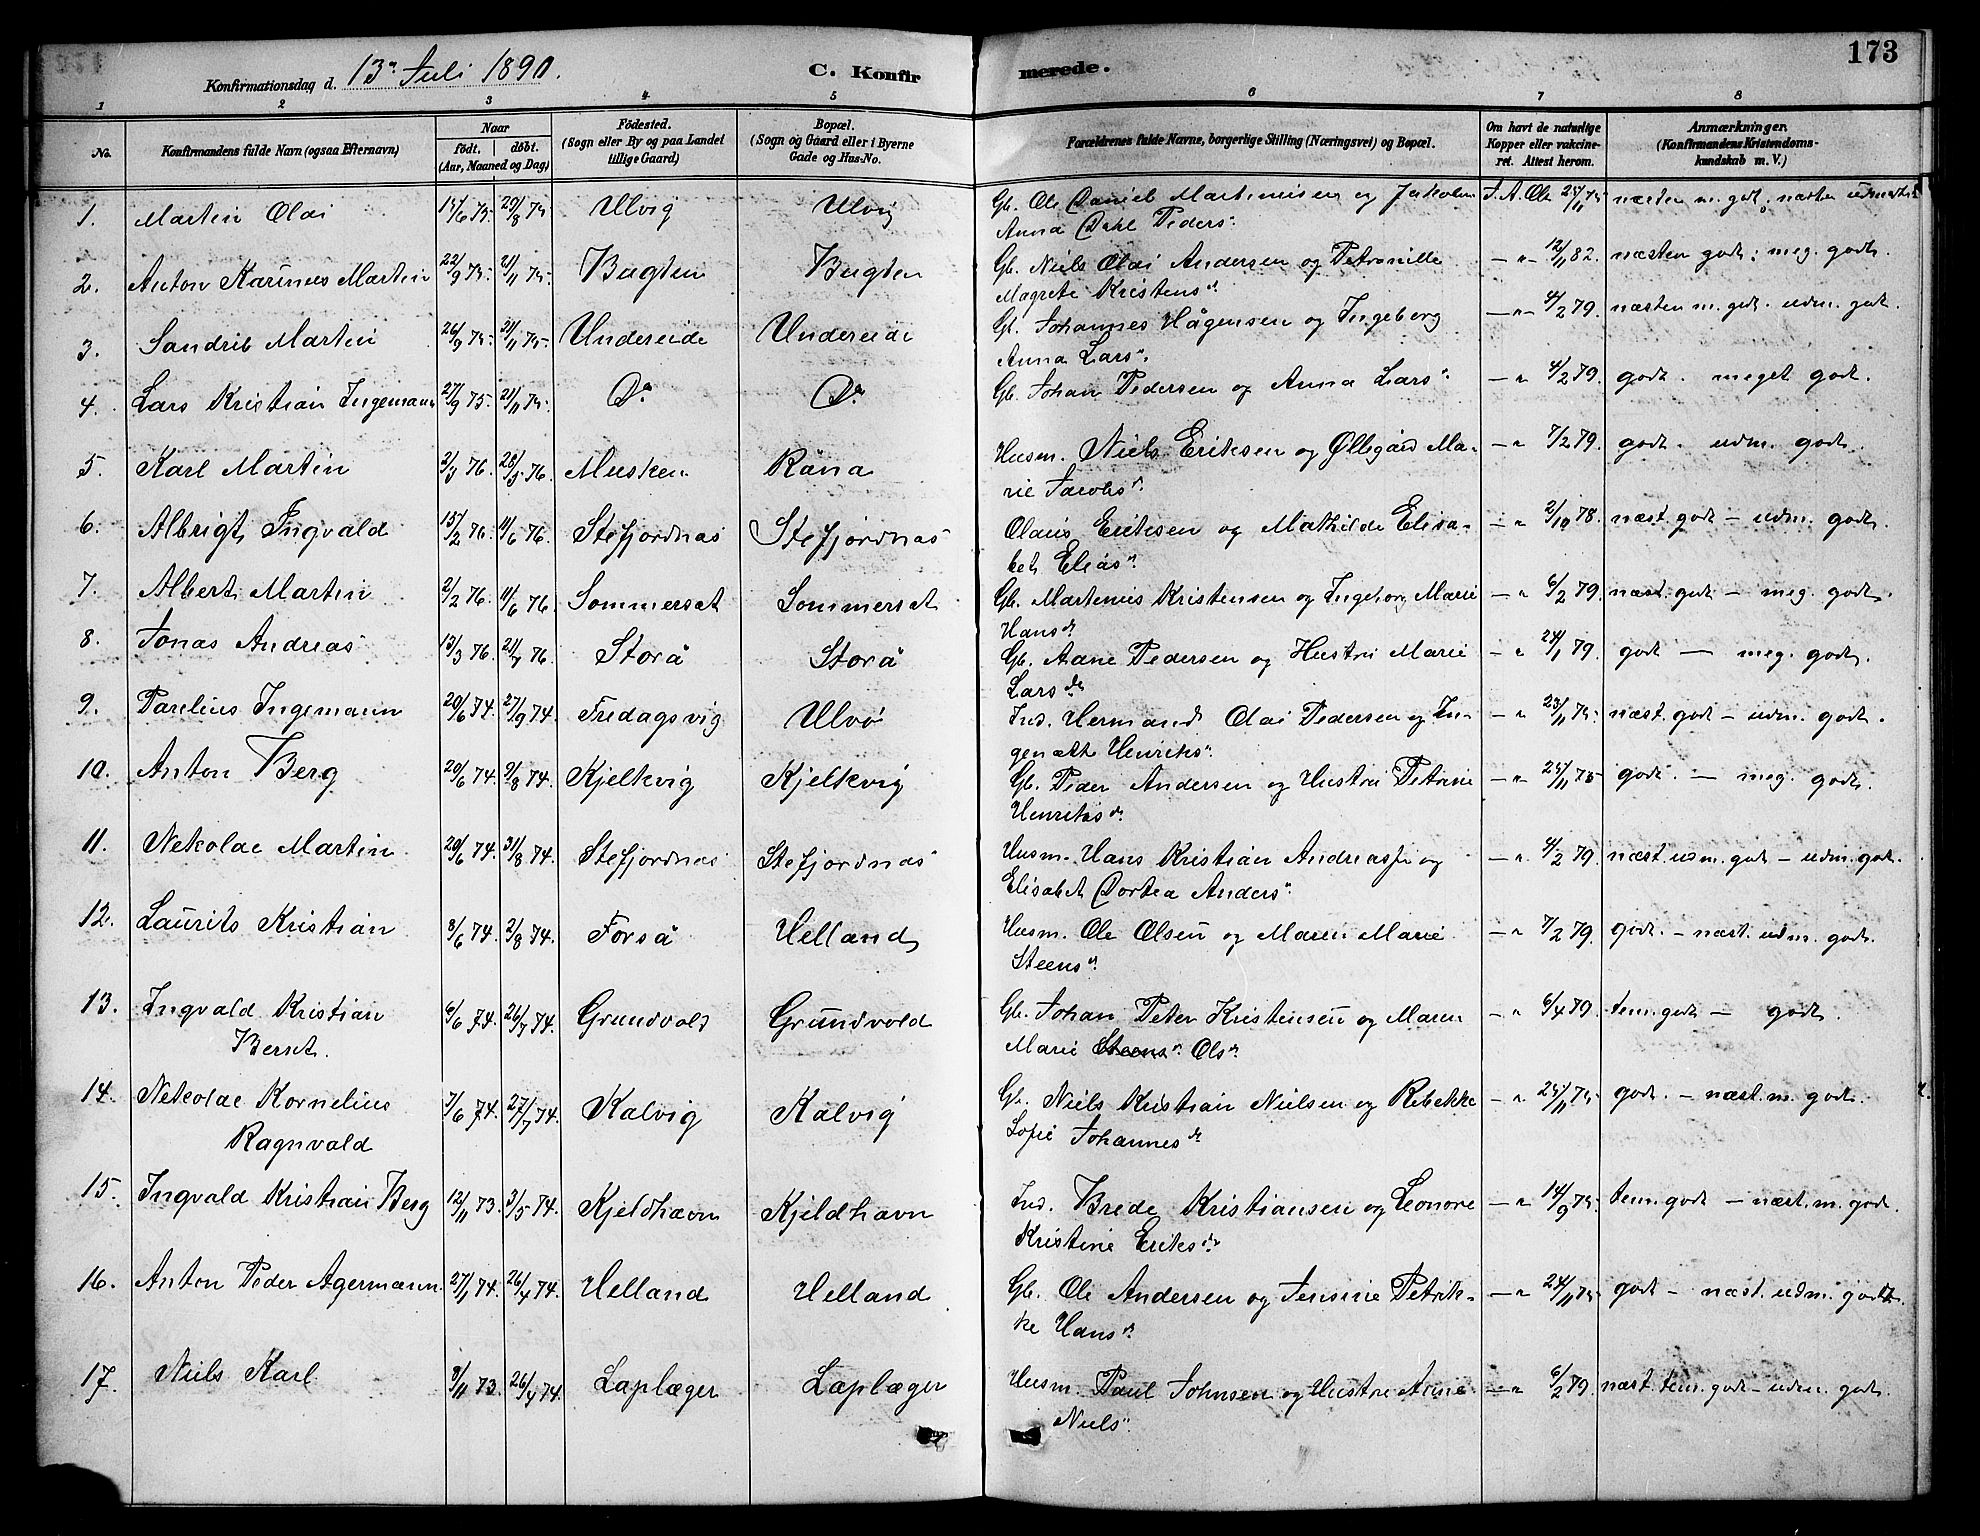 173
Konfirmationsdag d. 13de Juli 1890. C. Konfirmerede.
1 2 3 4 5 6 7 8
No. Konfirmandens fulde Navn (ogsaa Efternavn) Naar født. døbt. (Aar, Maaned og Dag) Fødested. (Sogn eller By og paa Landet tillige Gaard) Bopæl. (Sogn og Gaard eller i Byerne Gade og Hus-No. Forældrenes fulde Navne, borgerlige Stilling (Næringsvei) og Bopæl. Om havt de naturlige Kopper eller vakcineret. Attest herom. Anmærkninger. (Konfirmandens Kristendomskundskab m. V.)
1. Martin Olai 15/6 75 29/8 75 Ulvig Ulvig Gb. Ole Daniel Martinusen og Jakobin
Anna Dahl Peders". J. A. Ole 25/11 75 næsten m. godt; næsten udmærket
2. Anton Karinus Martin 22/9 75 21/11 75. Bugten Bugten Gb. Niels Olai Andersen og Petronille
Magrete Kristensd. — " 12/11 82. næsten godt; meg. godt.
3. Sandrib Martin 26/9 75. 21/11 75. Undereide Undereide Gb. Johannes Hågensen og Ingeborg
Anna Lars". — " 4/2 79. næsten m. godt. udm. godt.
4. Lars Kristian Ingemann 27/9 75. 21/11 75. Do Do Gb. Johan Pedersen og Anna Lars". — " 4/2 79. godt. meget godt.
5. Karl Martin 3/3 76. 28/5 76. Musken Råna Husm. Niels Eriksen og Øllegård Ma-
rie Jacobsd — " 7/2 79. godt. udm. godt.
6. Albrigt Ingvald 15/2 76. 11/6 76. Stefjordnas Stefjordnas Olaus Eriksen og Mathilde Elisa-
bet Elias". — " 2/10 78. næst. godt — udm. godt.
7. Albert Martin 2/2 76. 11/6 76. Sommerset Sommerset Gb. Martinus Kristensen og Ingeborg Marie
Hansd. — " 6/2 79. næst. godt — meg. godt.
8. Jonas Andreas 13/3 76. 21/7 76. Storå Storå Gb. Aane Pedersen og Hustru Marie
Larsdr — " 24/1 79. godt — meg. godt.
9. Parelius Ingemann 20/6 74. 27/9 74. Fredagsvig Ulvø Ind. Hermand Olai Pedersen og In-
genalt Henriks". — " 23/11 75. næst. godt — udm. godt.
10. Anton Berg 20/6 74. 2/8 74. Kjelkvig Kjelkvig Gb. Peder Andersen og Hustru Petrine
Henriksd. — " 25/11 75 godt. — meg. godt.
11. Nekolae Martin 20/6 74. 31/8 74. Stefjordnas Stefjordnas Husm. Hans Kristian Andreass. og
Elisabet Dortea Anders". — " 4/2 79. næst. udm. godt — udm. godt.
12. Laurits Kristian 8/6 74. 2/8 74. Forså Helland Husm. Ole Olsen og Maren Marie
Steens". — " 7/2 79. godt. — næst. udm. godt.
13. Ingvald Kristian
Bernt. 6/6 74. 26/7 74. Grundvold Grundvold Gb. Johan Peter Kristensen og Maren
Marie Steens". Olsd. — " 6/4 79. tem. godt — godt.
14. Nekolae Kornelius
Ragnvald 7/6 74. 27/7 74. Kalvig Kalvig Gb. Niels Kristian Nielsen og Rebekke
Sofie Johannesd. — " 25/11 75. godt. — næst. m. godt.
15. Ingvald Kristian Berg 12/11 73. 3/5 74. Kjeldhavn Kjeldhavn Ind. Brede Kristiansen og Leonore
Kristine Eriksdr — " 14/9 75. tem. godt — næst. m. godt.
16. Anton Peder Agermann 27/1 74. 26/4 74. Helland Helland Gb. Ole Andersen og Jensine Petrik-
ke Hansd. — " 24/11 75. godt — næst. udm. godt.
17. Niels Karl 8/11 73. 26/4 74. Laplæger Laplæger Husm. Paul Johnsen og Hustru Anne
Niels". — " 6/2 79. næst. tem. godt — udm. godt.